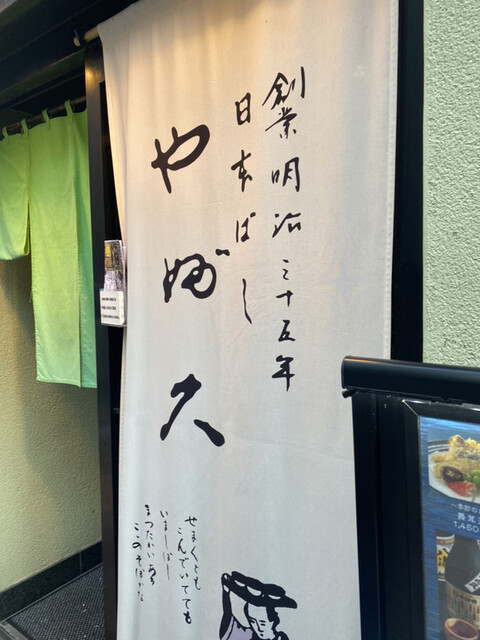 創業明治三十五年
日本ばし
やぶ久
せまくとも
こんでいても
いましばし
まつたかいある
このそばかな
1,450